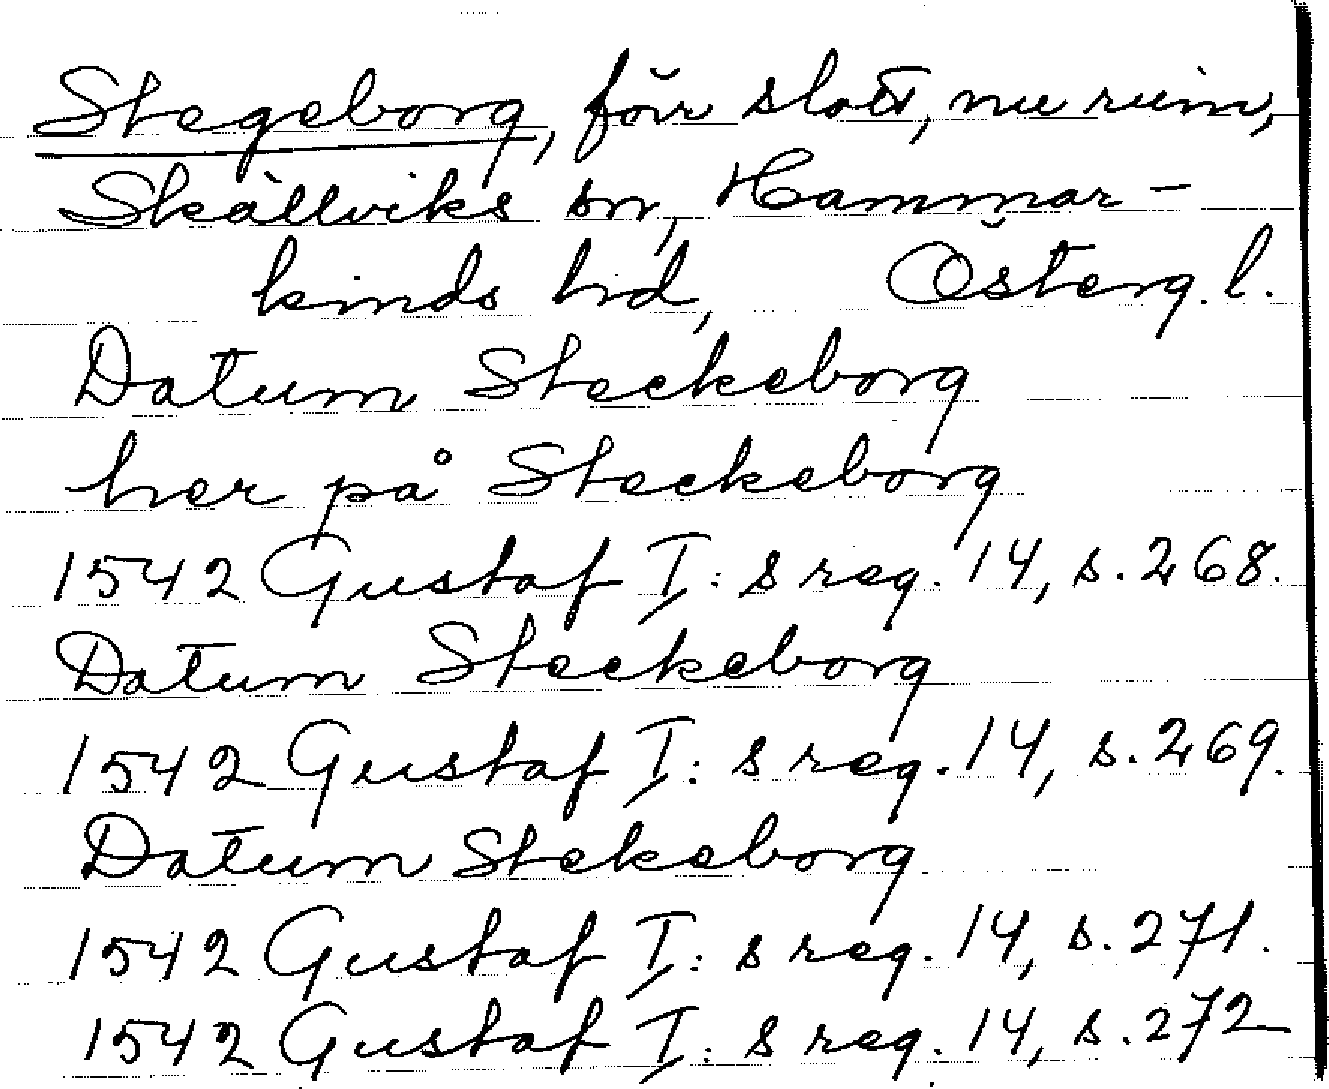 Stegeborg, förr slott, nu ruin,
Skällviks sn, Hammar-
kinds hd, Österg. l.
Datum Steckeborg
her på Steckeborg
1542 Gustaf I: s reg. 14, s. 268.
Datum Steckeborg
1542 Gustaf I: s reg. 14, s. 269.
Datum Stekeborg
1542 Gustaf I: s reg. 14, s. 271.
1542 Gustaf I: s reg. 14, s. 272